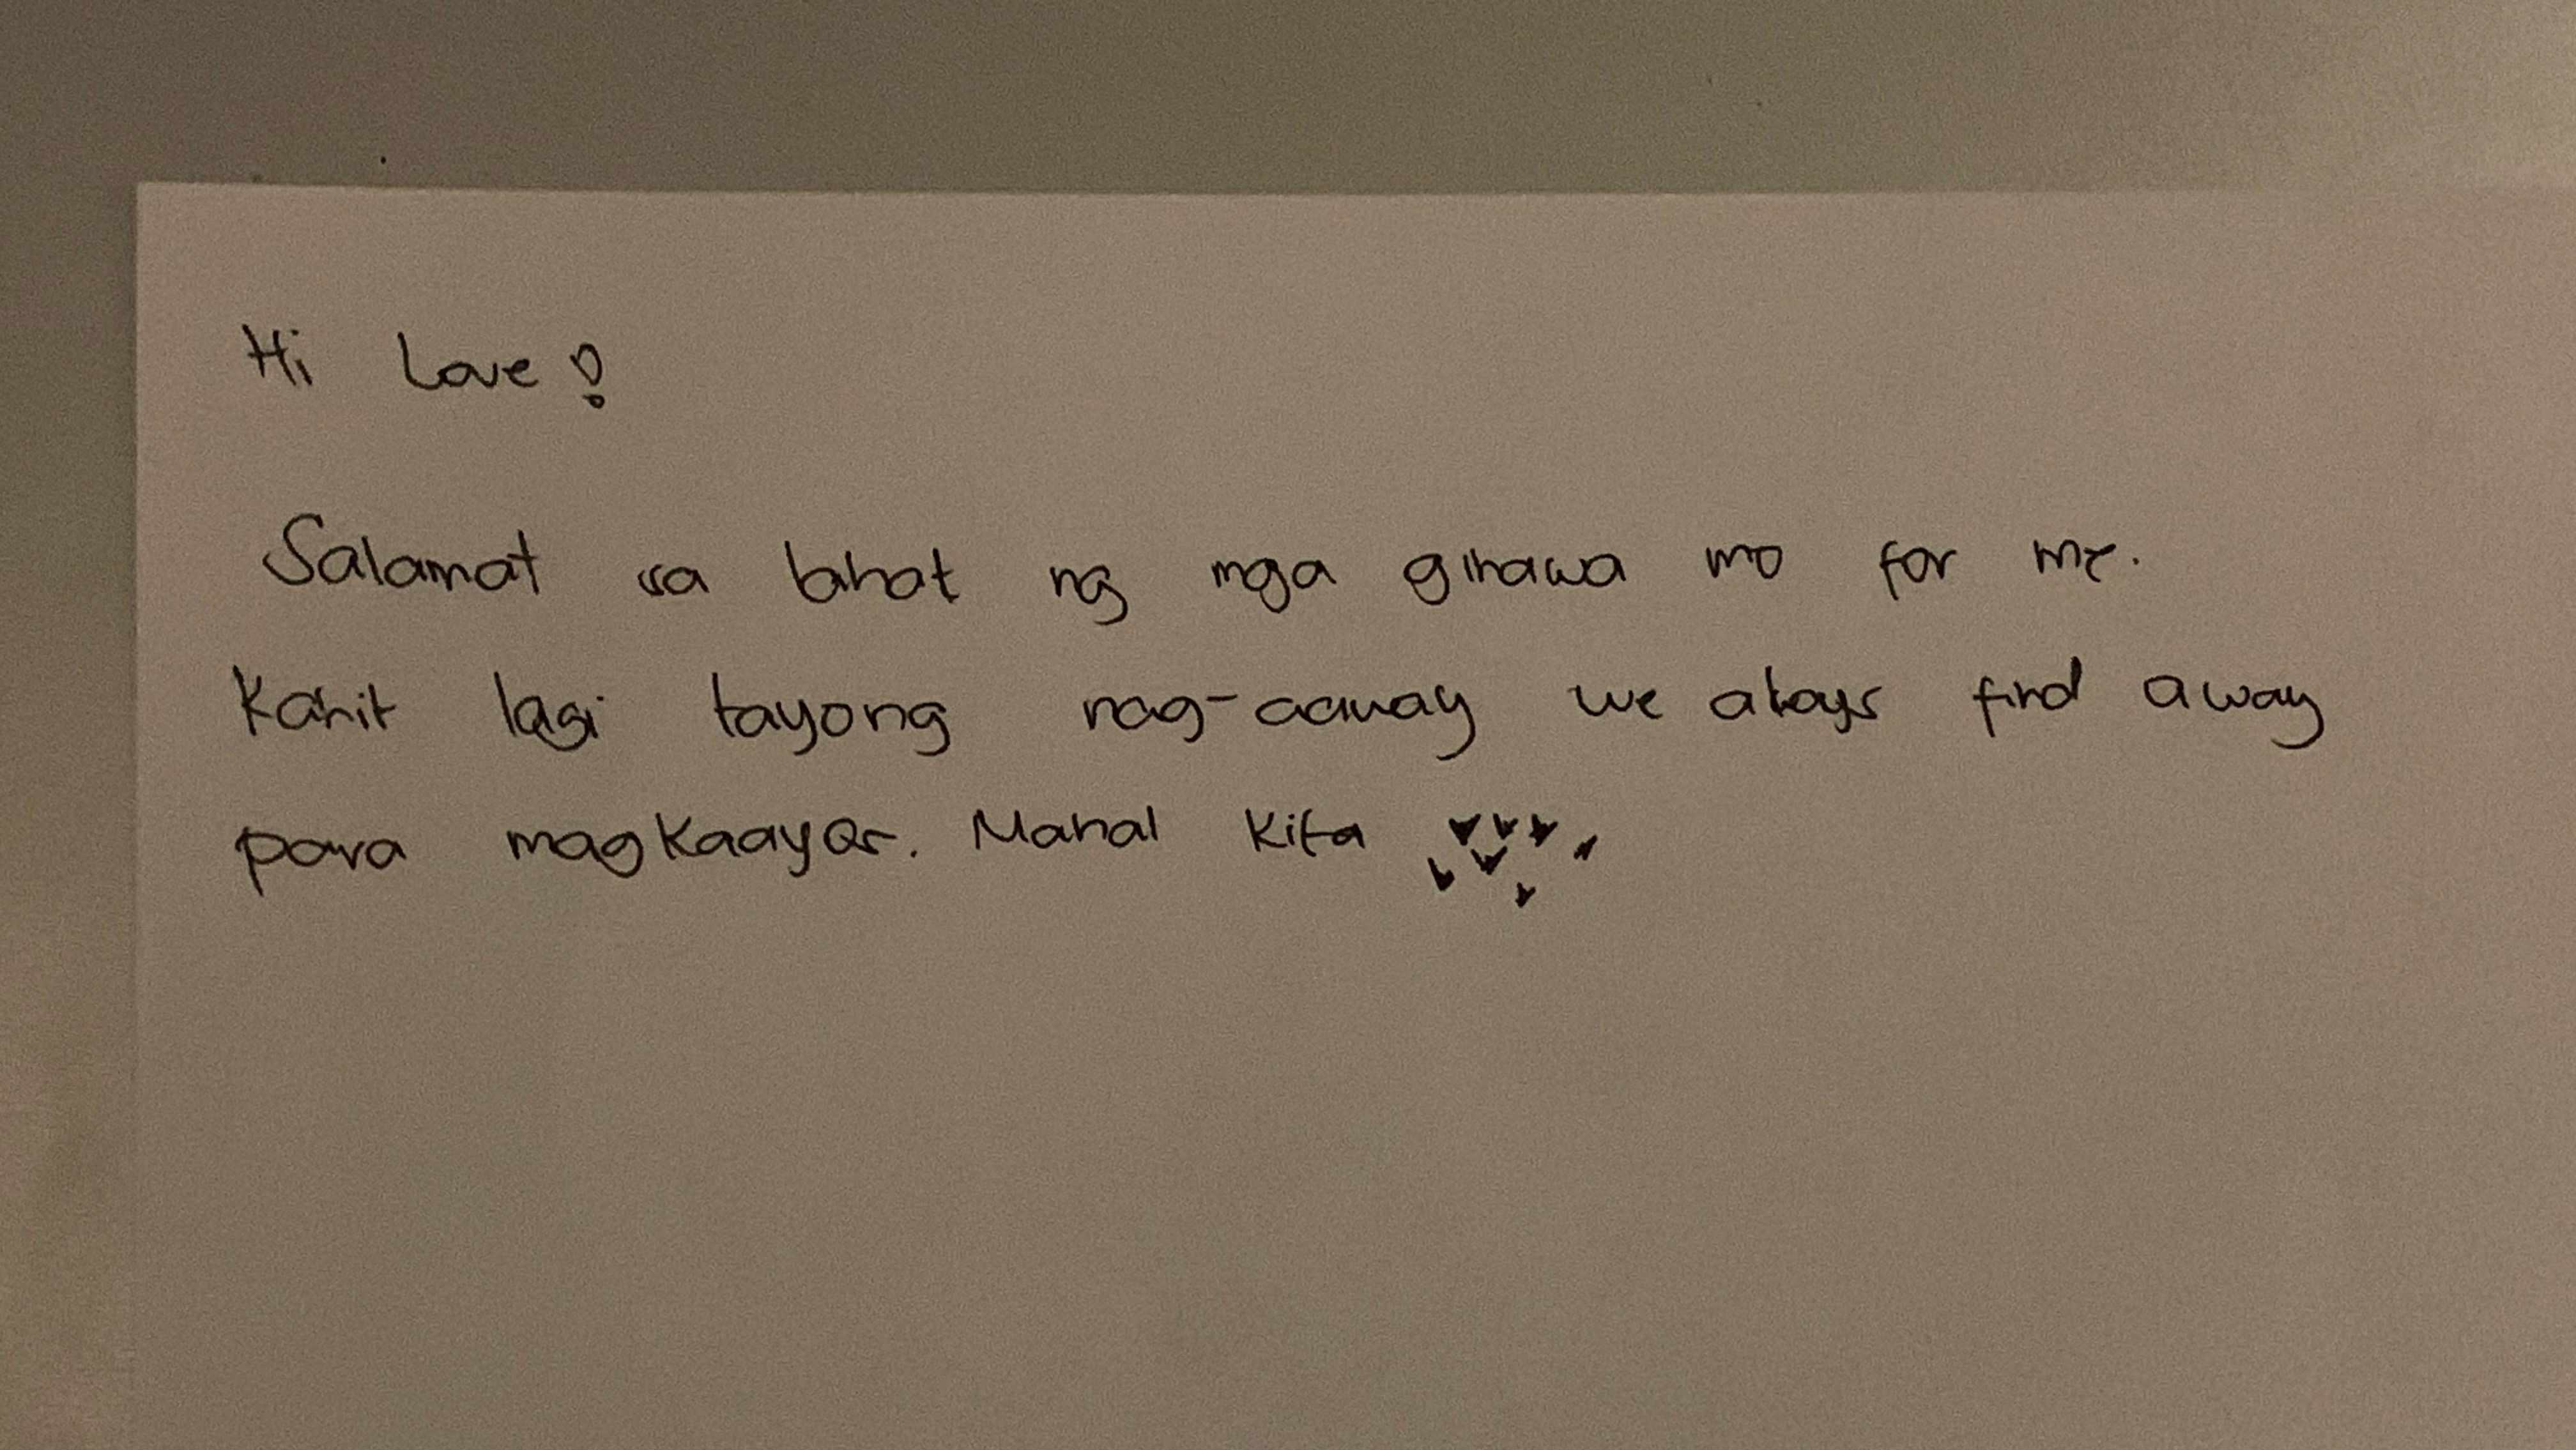 Hi Love!
Salamat sa lahat ng mga ginawa mo for me.
Kahit lagi tayong nag-aaway we always find away
para magkaayos. Mahal kita